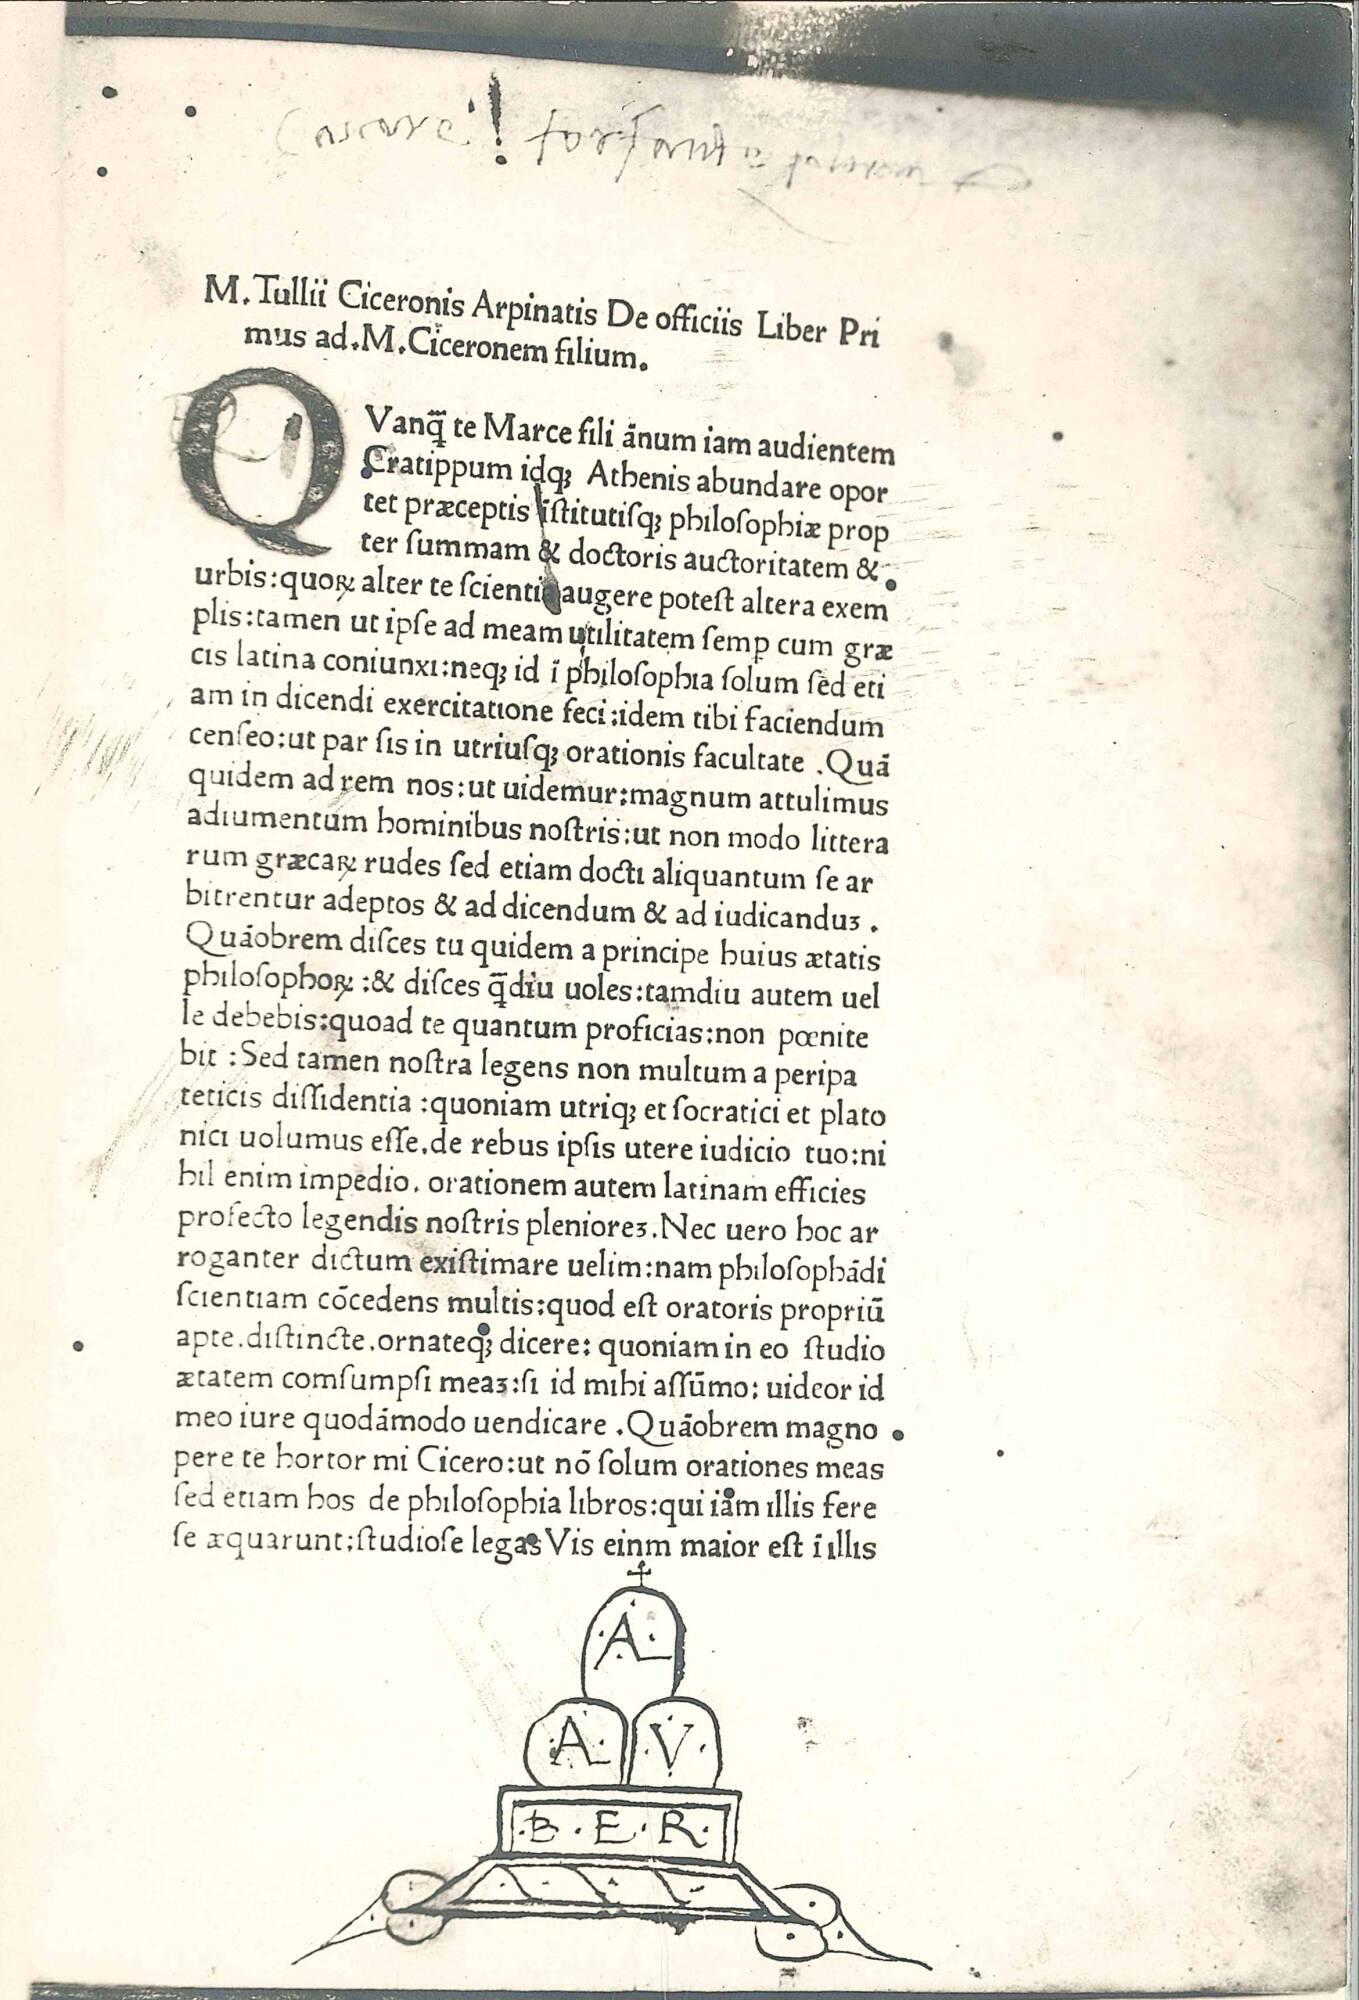 M. Tullii Ciceronis Arpinatis De officiis Liber Pri
mus ad. M. Ciceronem filium.
QVanq̃ te Marce fili ãnum iam audientem
Cratippum idqꝫ Athenis abundare opor
tet præceptis ĩſtitutiſqꝫ philoſophiæ prop
ter ſummam & doctoris auctoritatem &
urbis:quoꝝ alter te ſcientia augere poteſt altera exem
plis:tamen ut ipſe ad meam utilitatem ſemꝑ cum græ
cis latina coniunxi:neqꝫ id ĩ philoſophia ſolum ſed eti
am in dicendi exercitatione feci:idem tibi faciendum
cenſeo:ut par ſis in utriuſqꝫ orationis facultate .Quã
quidem ad rem nos:ut uidemur:magnum attulimus
adiumentum hominibus noſtris:ut non modo littera
rum græcaꝝ rudes ſed etiam docti aliquantum ſe ar
bitrentur adeptos & ad dicendum & ad iudicanduꝫ .
Quãobrem diſces tu quidem a principe huius ætatis
philoſophoꝝ :& diſces q̃diu uoles:tamdiu autem uel
le debebis:quoad te quantum proficias:non pœnite
bit :Sed tamen noſtra legens non multum a peripa
teticis diſſidentia :quoniam utriqꝫ et ſocratici et plato
nici uolumus eſſe.de rebus ipſis utere iudicio tuo:ni
hil enim impedio. orationem autem latinam efficies
profecto legendis noſtris plenioreꝫ.Nec uero hoc ar
roganter dictum exiſtimare uelim:nam philoſophãdi
ſcientiam cõcedens multis:quod eſt oratoris propriũ
apte.diſtincte.ornateqꝫ dicere: quoniam in eo ſtudio
ætatem comſumpſi meaꝫ:ſi id mihi aſſũmo: uideor id
meo iure quodãmodo uendicare .Quãobrem magno
pere te hortor mi Cicero:ut nõ ſolum orationes meas
ſed etiam hos de philoſophia libros:qui iam illis fere
ſe æquarunt:ſtudioſe legas Vis einm maior eſt ĩ illis
.A.
.A. .V.
.B.E.R.